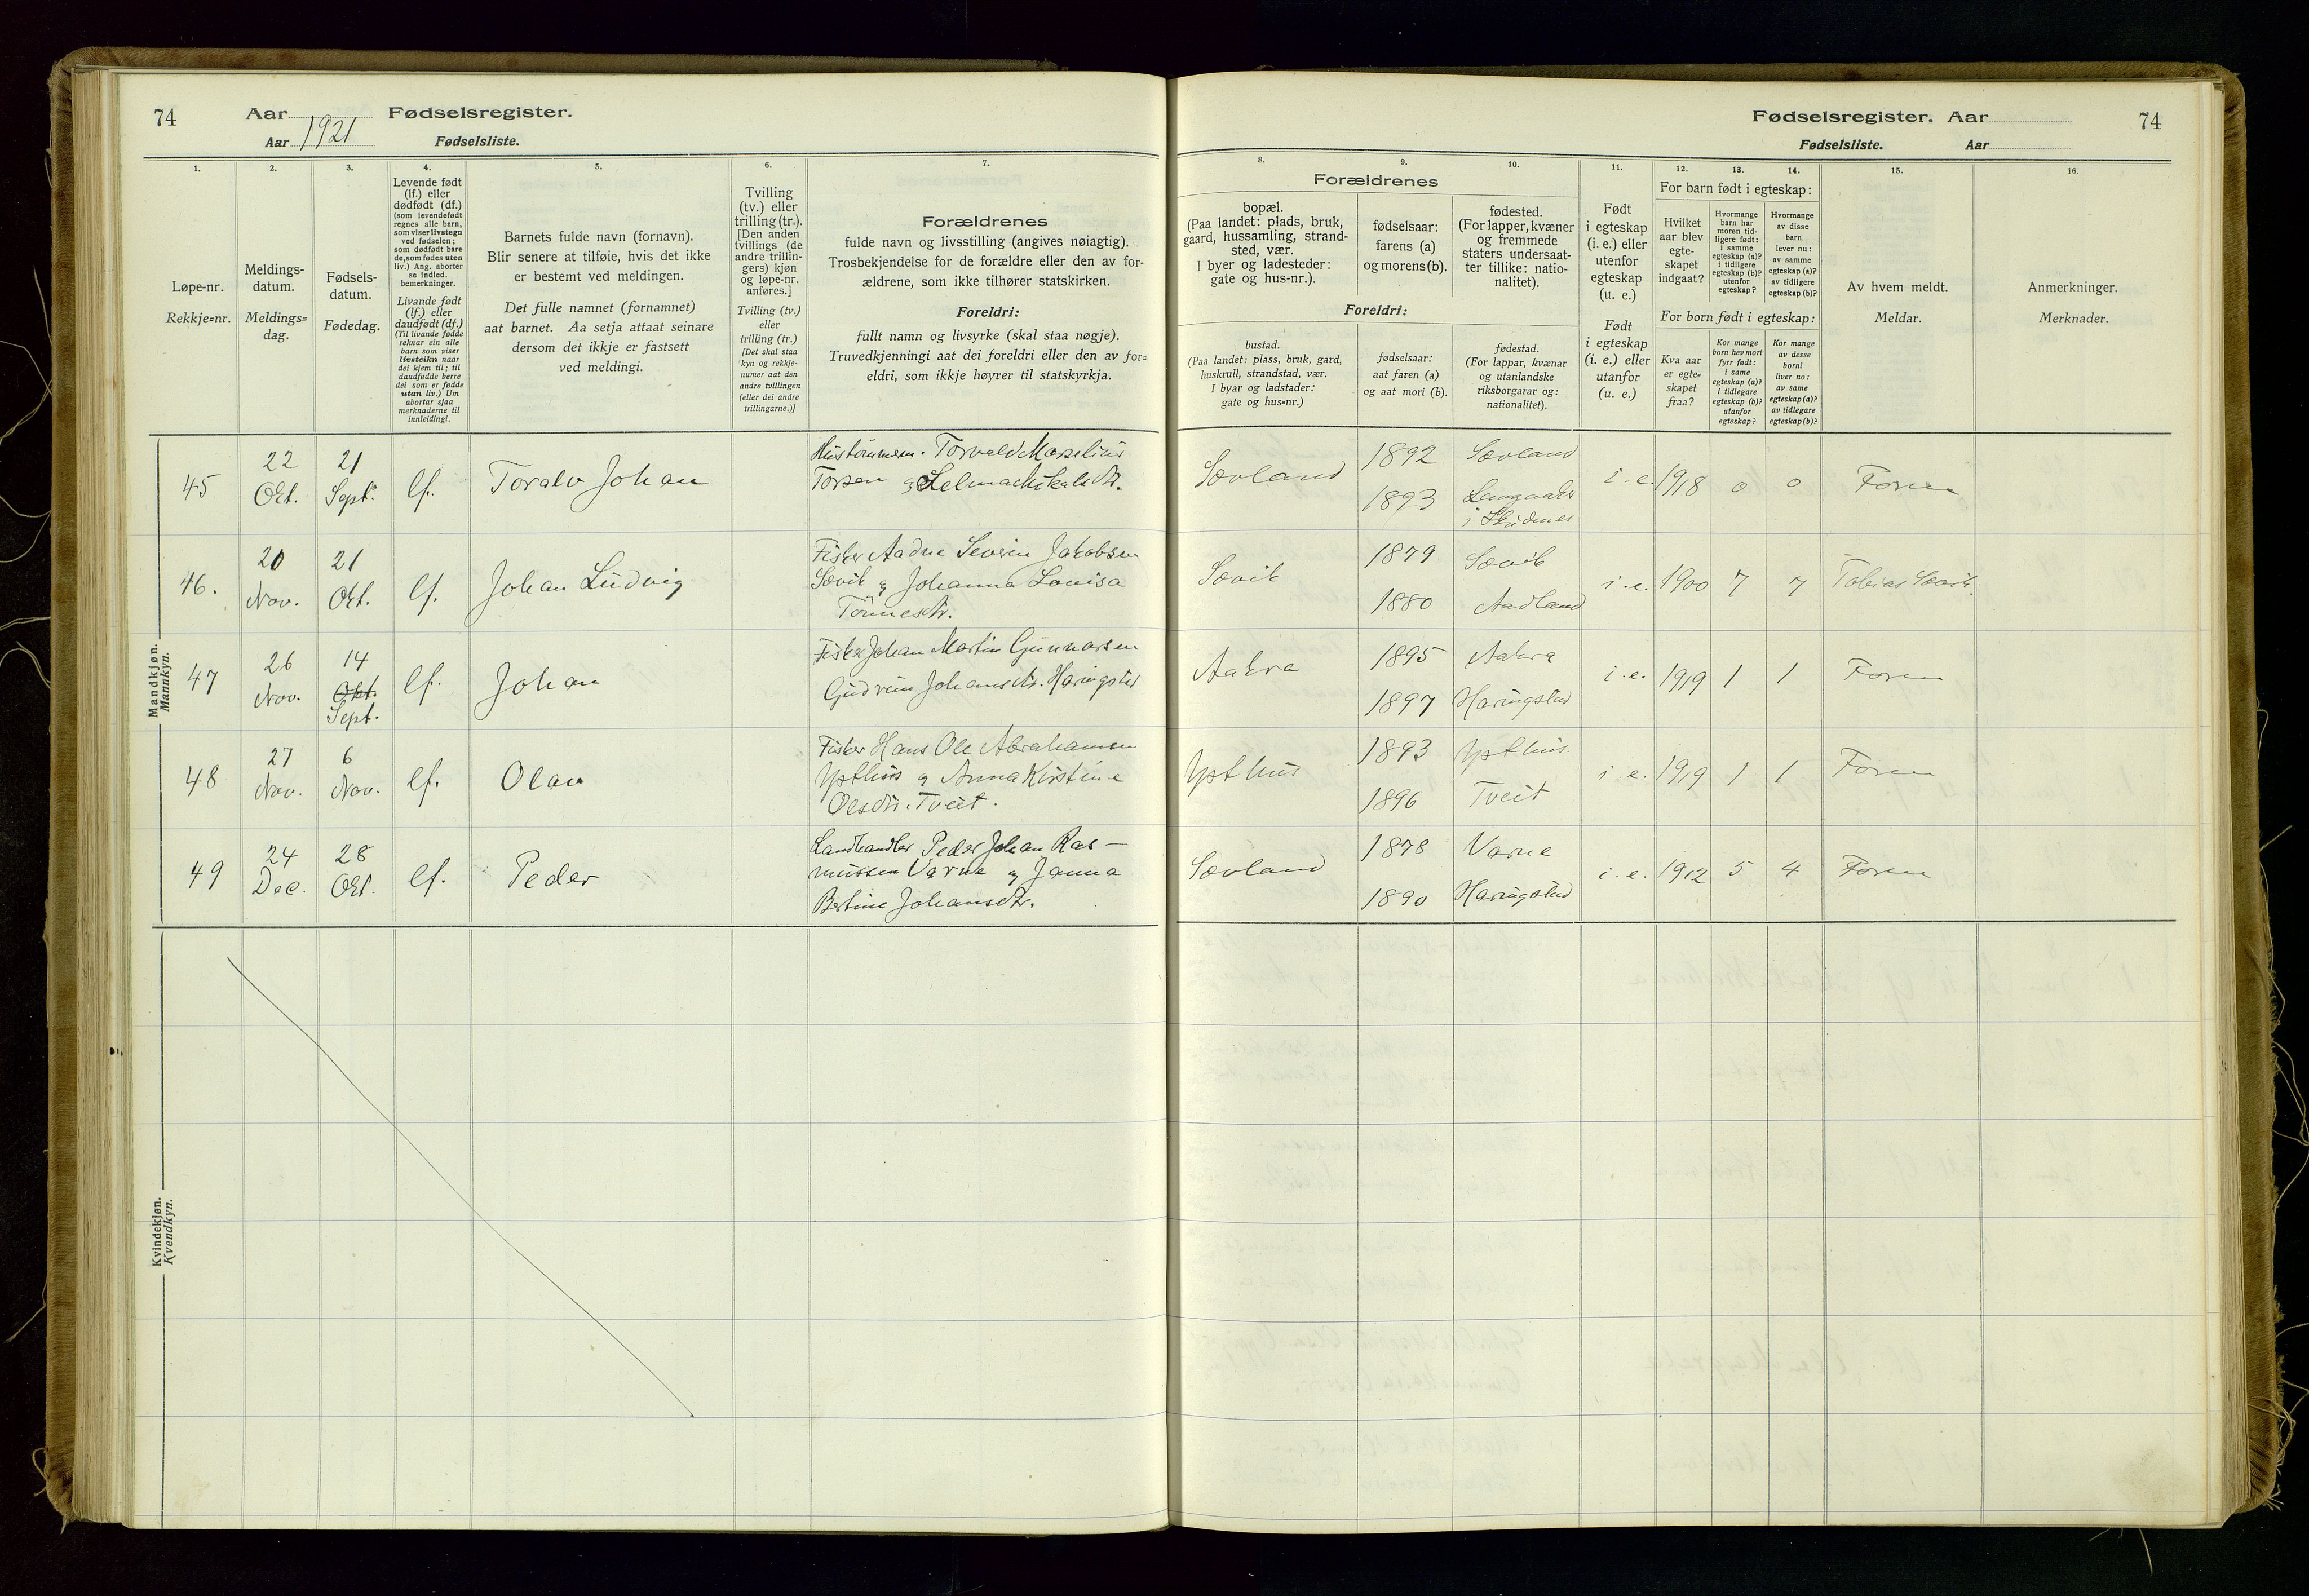 74 Aar Fødselsregister.
Aar 1921 Fødselsliste.
Fødselsregister. Aar 74
Fødselsliste. Aar
1. 2. 3. 4. 5. 6. 7.
Løpe-nr.
Rekkje=nr.
Meldings-
datum.
Meldings=
dag.
Fødsels-
datum.
Fødedag.
Levende født
(lf.) eller
dødfødt (df.)
(som levendefødt
regnes alle barn,
som viser livstegn
ved fødselen;
som dødfødt bare
de, som fødes uten
liv.) Ang. aborter
se indled.
bemerkninger.
Livande født
(lf.) eller
daudfødt (df.)
(Til livande fødde
reknar ein alle
barn som viser
livsteikn naar
dei kjem til; til
daudfødde berre
dei som er fødde
utan liv.) Um
abortar sjaa
merknaderne til
innleidingi.
Barnets fulde navn (fornavn).
Blir senere at tilføie, hvis det ikke
er bestemt ved meldingen.
Det fulle namnet (fornamnet)
aat barnet. Aa setja attaat seinare
dersom det ikkje er fastsett
ved meldingi.
Tvilling
(tv.) eller
trilling (tr.).
[Den anden
tvillings (de
andre trillin-
gers) kjøn
og løpe-nr.
anføres.]
Tvilling (tv.)
eller
trilling (tr.)
[Det skal staa
kyn og rekkje-
numer aat den
andre tvillingen
(eller dei andre
trillingarne.)]
Forældrenes
fulde navn og livsstilling (angives nøiagtig).
Trosbekjendelse for de forældre eller den av for-
ældrene, som ikke tilhører statskirken.
Foreldri:
fullt namn og livsyrke (skal staa nøgje).
Truvedkjenningi aat dei foreldri eller den av for=
eldri, som ikkje høyrer til statskyrkja.
8. 9. 10. 11. 12. 13. 14. 15. 16.
Forældrenes
bopæl.
(Paa landet: plads, bruk,
gaard, hussamling, strand-
sted, vær.
I byer og ladesteder:
gate og hus-nr.).
fødselsaar:
farens (a)
og morens (b).
fødested.
(For lapper, kvæner
og fremmede
staters undersaat-
ter tillike: natio-
nalitet).
Foreldri:
bustad.
(Paa landet: plass, bruk, gard,
huskrull, strandstad, vær.
I byar og ladstader:
gate og hus=nr.)
fødselsaar:
aat faren (a)
og aat mori (b).
fødestad.
(For lappar, kvænar
og utanlandske
riksborgarar og:
nationalitet).
Født
i egteskap
(i. e.) eller
utenfor
egteskap
(u. e.)
Født
i egteskap
(i. e.) eller
utanfor
(u. e.)
For barn født i egteskap:
Hvilket
aar blev
egte-
skapet
indgaat?
Hvormange
barn har
moren tid-
ligere født:
i samme
egteskap (a)?
i tidligere
egteskap (b)?
utenfor
egteskap?
Hvormange
av disse
barn
lever nu:
av samme
egteskap (a)?
av tidligere
egteskap (b)?
For born født i egteskap:
Kva aar
er egte=
skapet
fraa?
Kor mange
born hev mori
fyrr født:
i same
egteskap (a)?
i tidlegare
egteskap (b)?
utanfor
egteskap?
Kor mange
av desse
borni
liver no:
av same
egteskap (a)?
av tidlegare
egteskap (b)?
Av hvem meldt.
Meldar.
Anmerkninger.
Merknader.
Mandkjøn.
Mannkyn.
45 22 Okt. 21 Sept. lf. Toralv Johan
Torvald Marselius
Torsen
Sævland 1892 Sævland
1893
i Skudnes
i. e. 1918 0 0 Faren
46. 20 Nov. 21 Okt. lf. Johan Ludvig
Fisker Aadne Severin Jakobsen
Sævik og Johanna Lovisa
Tønnesdtr.
Sævik 1879 Sævik
1880 Aadland
i. e. 1900 7 7 Tobias Sævik.
47 26 Nov. 14 Okt. Sept. lf. Johan
Fisker Johan Martin Gunnarsen
Gudrun Johansdtr. Haringstad
Aakra 1895 Aakra
1897 Haringstad
i. e. 1919 1 1 Faren
48 27 Nov. 6 Nov. lf. Olav
Fisker Hans Ole Abrahamsen
Ypthus og Anna Kirstine
Olsdtr. Tveit.
Ypthus 1893 Ypthus.
1896 Tveit
i. e. 1919 1 1 Faren
49 24 Dec. 28 Okt. lf. Peder
Landhandler Peder Johan Ras-
mussen Varne og Janna
Bertine Johansdtr.
Sævland 1878 Varne
1890 Haringstad
i. e. 1912 5 4 Faren
Kvindekjøn.
Kvendkyn.